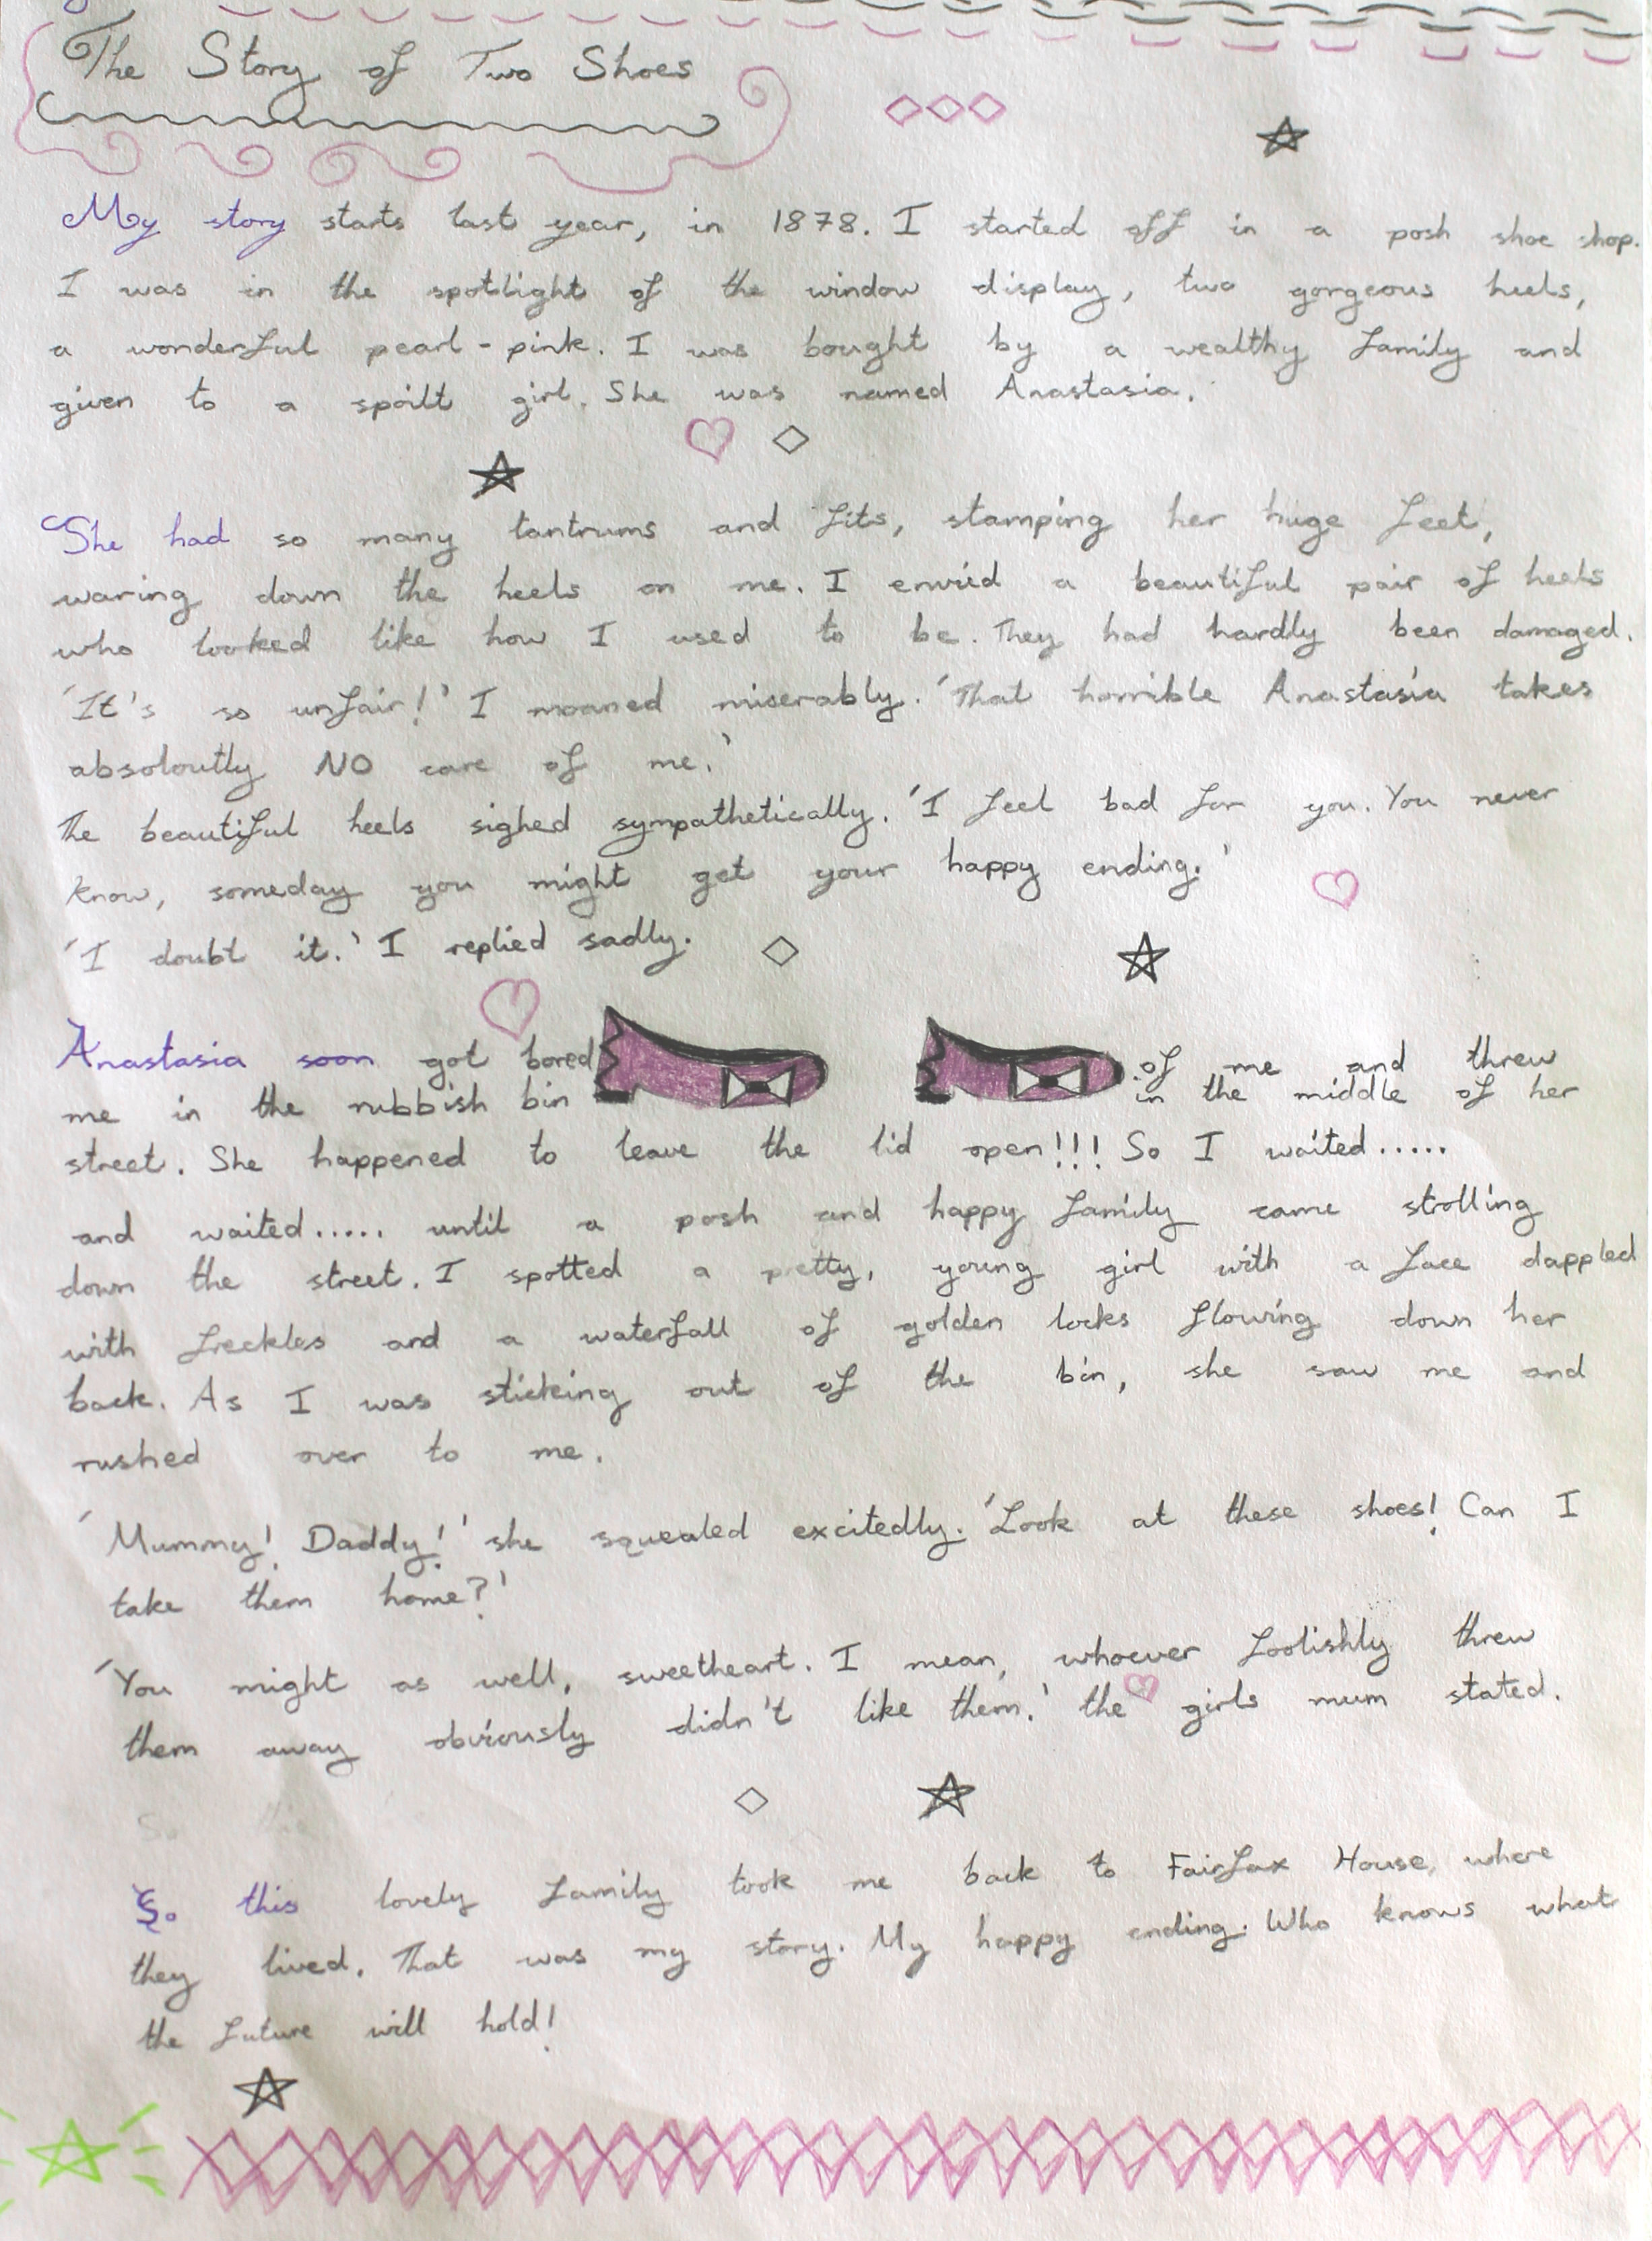 The Story of Two Shoes
My story starts last year, in 1878. I started off in a posh shoe shop.
I was in the spotlight of the window display, two gorgeous heels,
a wonderful pearl-pink. I was bought by a wealthy family and
given to a spoilt girl. She was named Anastasia.
She had so many tantrums and fits, stamping her huge feet,
waring down the heels on me. I envied a beautiful pair of heels
who looked like how I used to be. They had hardly been damaged.
'It's so unfair!' I moaned miserably. 'That horrible Anastasia takes
absoloutly NO care of me.'
The beautiful heels sighed sympathetically. 'I feel bad for you. You never
know, someday you might get your happy ending.'
'I doubt it.' I replied sadly.
Anastasia soon got bored of me and threw
me in the rubbish bin in the middle of her
street. She happened to leave the lid open!!! So I waited.....
and waited..... until a posh and happy family came strolling
down the street. I spotted a pretty, young girl with a face dappled
with freckles and a waterfall of golden locks flowing down her
back. As I was sticking out of the bin, she saw me and
rushed over to me.
'Mummy! Daddy!' she squealed excitedly. 'Look at these shoes! Can I
take them home?'
'You might as well, sweetheart. I mean, whoever foolishly threw
them away obviously didn't like them.' the girls mum stated.
So this lovely family took me back to Fairfax House, where
they lived. That was my story. My happy ending. Who knows what
the future will hold!